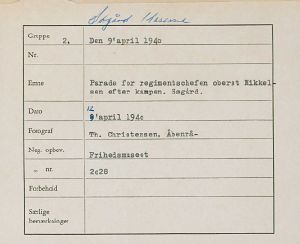 Søgård Kaserne
Gruppe 2. Den 9'april 1940
Nr.
Emne Parade for regimentschefen oberst Mikkel-
sen efter kampen. Søgård.
Dato 12
9'april 1940
Fotograf Th. Christensen, Åbenrå-
Neg. opbev. Frihedsmuseet
„ nr. 2c28
Forbehold
Særlige
bemærkninger